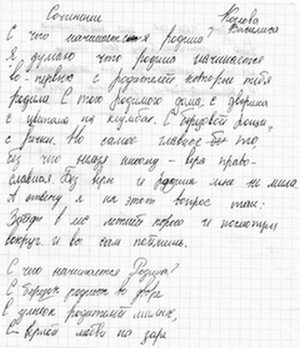 Сочинение Козлова Василиса
С чего начинается родина?
Я думаю что родина начинается
во-первых с родителей которые тебя
родили. С того родимого дома, с дворика
с цветами на клумбах. С берёзовой рощи,
с речки. Но самое главное то,
без чего нельзя никому - вера право-
славная. Без веры и родина мне не мила.
А отвечу я на этот вопрос так:
Зайди в лес летней порою и посмотри
вокруг и вс сам поймёшь.
С чего начинается Родина?
С берёзок родных во дворе
С улыбок родителей милых,
С верной любви на заре